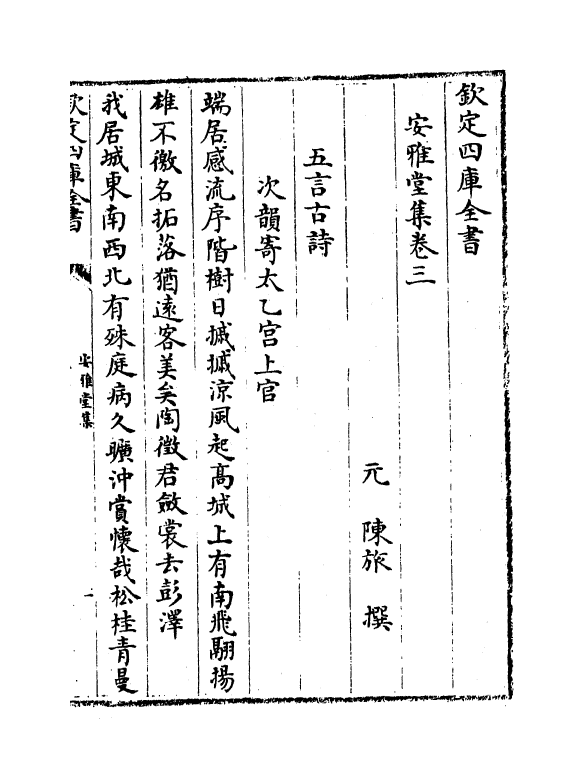 欽定四庫全書
安雅堂集卷三
元 陳旅 撰
五言古詩
次韻寄太乙宫上官
端居感流序階樹日摵摵涼風起髙城上有南飛翮揚
雄不徼名拓落猶遠客美矣陶徵君斂裳去彭澤
我居城東南西北有殊庭病久曠沖賞懷哉松桂青曼
欽定四庫全書
安雅堂集
一